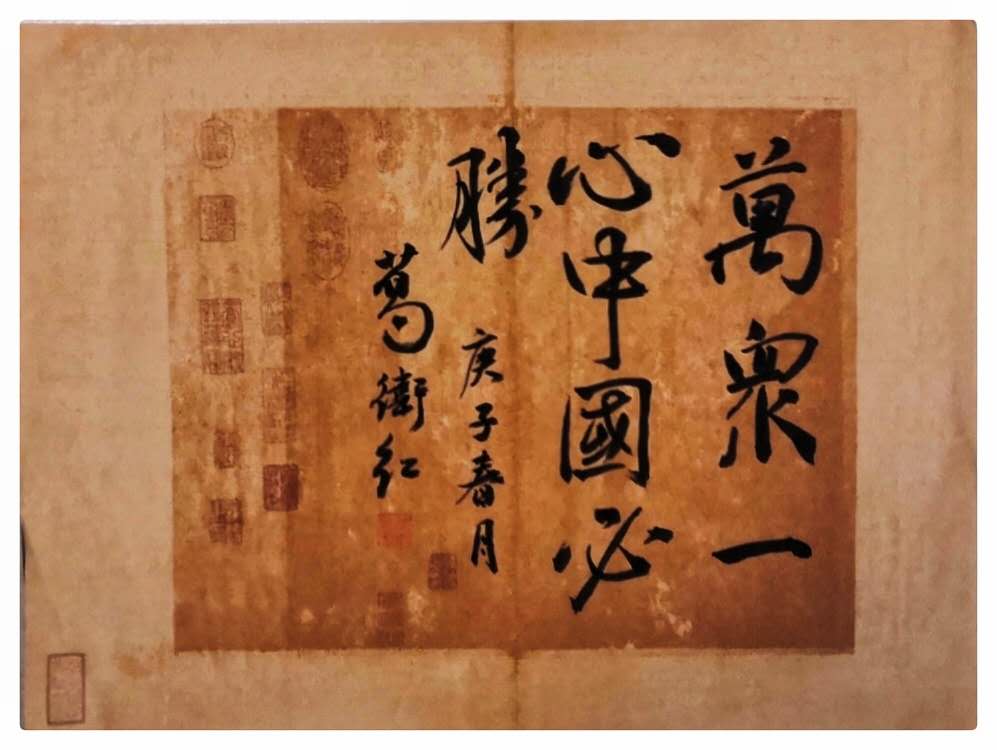 萬衆一
心中國必
勝
庚子春月
葛衛紅